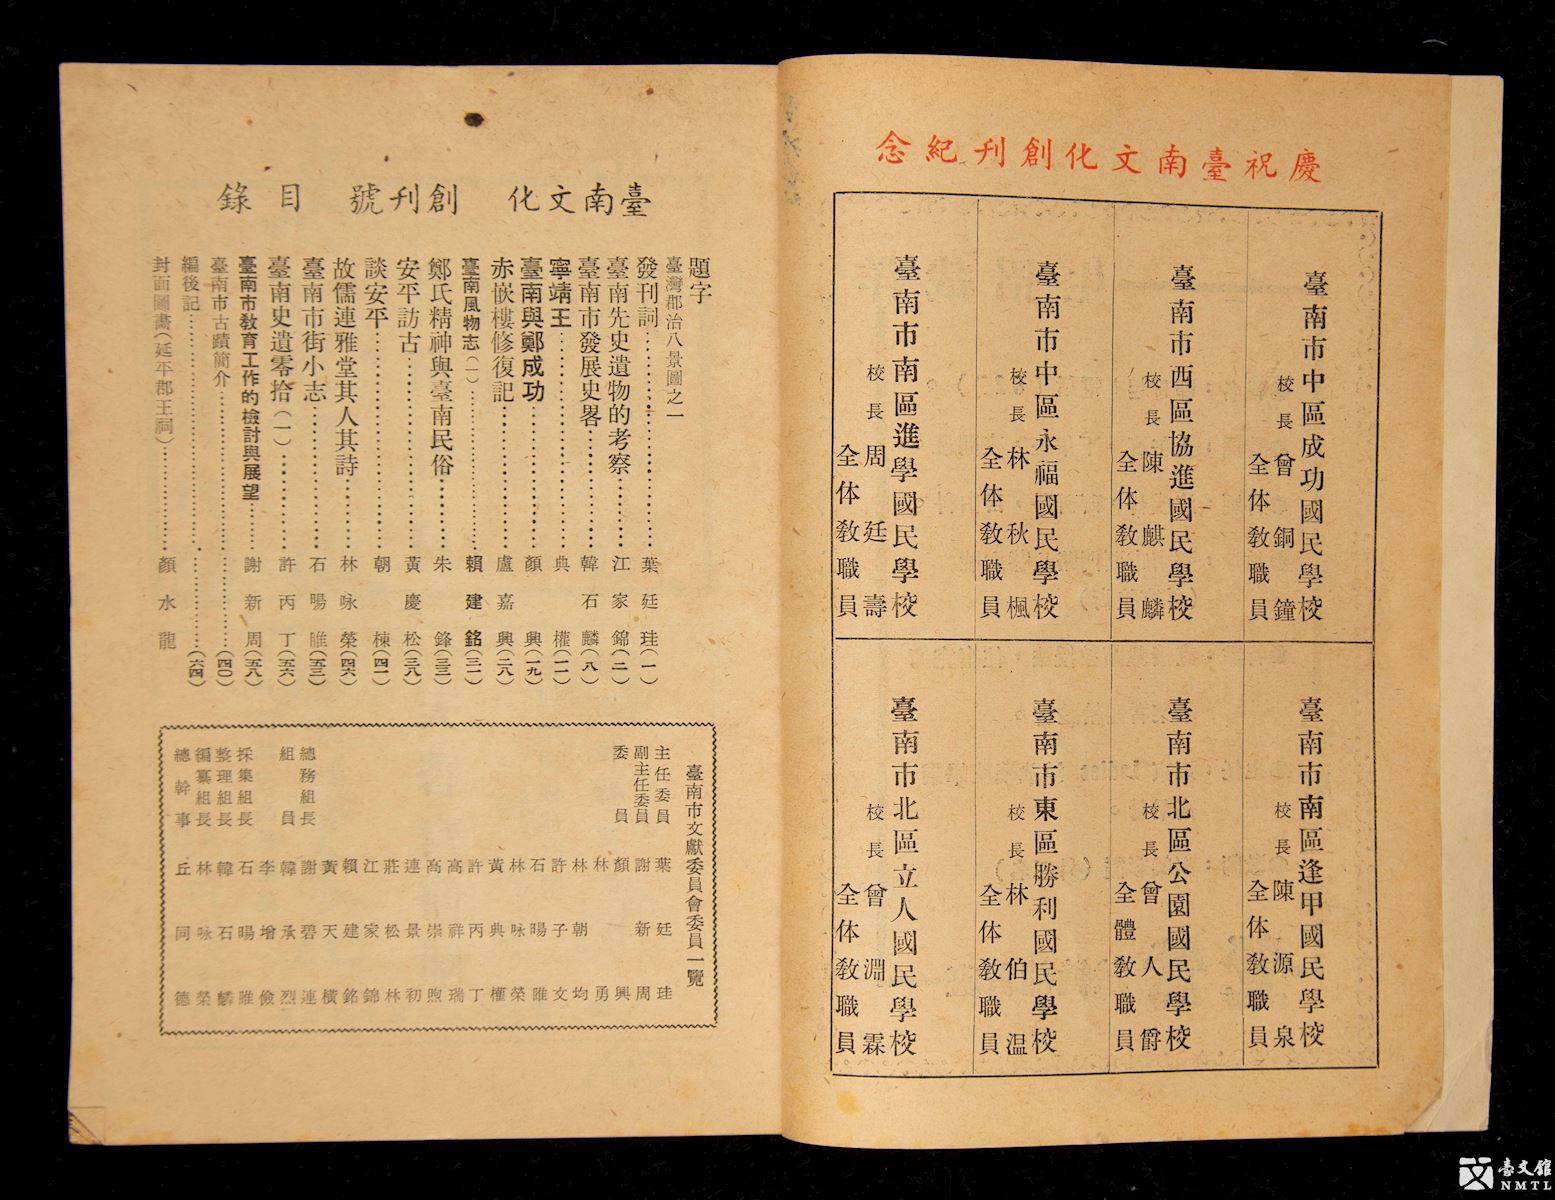 慶祝臺南文化創刊紀念
臺南市中區成功國民學校
校長 曾銅鐘
全体教職員
臺南市西區協進國民學校
校長 陳麒麟
全体教職員
臺南市中區永福國民學校
校長 林秋楓
全体教職員
臺南市南區進學國民學校
校長 周廷壽
全体教職員
臺南市南區逢甲國民學校
校長 陳源泉
全体教職員
臺南市北區公園國民學校
校長 曾人爵
全體教職員
臺南市東區勝利國民學校
校長 林伯温
全体教職員
臺南市北區立人國民學校
校長 曾淵霖
全体教職員
臺南文化 創刊號 目錄
題字
臺灣郡治八景圖之一
發刊詞……葉廷珪(一)
臺南先史遺物的考察……江家錦(二)
臺南市發展史畧……韓石麟(八)
寧靖王……典權(一一)
臺南與鄭成功……顏興(一九)
赤嵌樓修復記……盧嘉興(二八)
臺南風物志(一)……賴建銘(三一)
鄭氏精神與臺南民俗……朱鋒(三三)
安平訪古……黃慶松(三八)
談安平……朝棟(四一)
故儒連雅堂其人其詩……林咏榮(四六)
臺南市街小志……石暘睢(五三)
臺南史遺零拾(一)……許丙丁(五六)
臺南市教育工作的檢討與展望……謝新周(五八)
臺南市古蹟簡介……(四〇)
編後記……(六四)
封面圖畫(延平郡王祠)……顏水龍
臺南市文獻委員會委員一覽
主任委員 葉廷珪
副主任委員 謝新周
委員 顏興
林勇
林朝均
許子文
石暘睢
林咏榮
黃典權
許丙丁
高祥瑞
高崇煦
連景初
莊松林
江家錦
賴建銘
黃天橫
總務組長 謝碧連
組員 韓承烈
李增儉
採集組長 石暘睢
整理組長 韓石麟
編纂組長 林咏榮
總幹事 丘同德
臺文館
NMTL